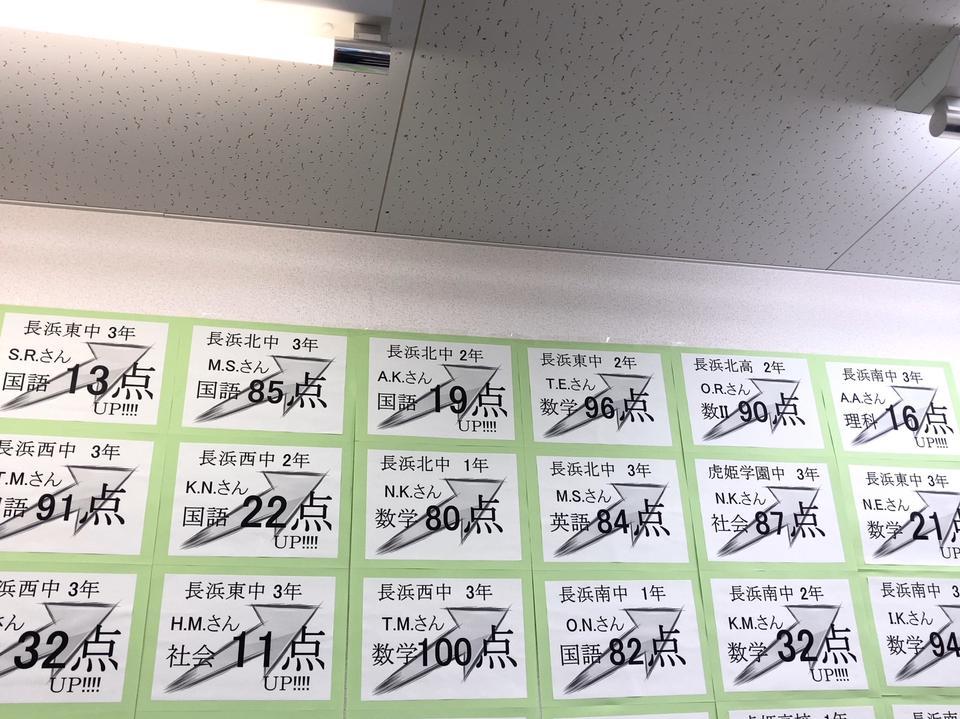 長浜東中 3年
S.R.さん
国語 13点
UP!!!!
長浜北中 3年
M.S.さん
国語 85点
長浜北中 2年
A.K.さん
国語 19点
UP!!!!
長浜東中 2年
T.E.さん
数学 96点
長浜北高 2年
O.R.さん
数II 90点
長浜南中 3年
A.A.さん
理科 16点
UP!!!!
長浜西中 3年
T.M.さん
語 91点
長浜西中 2年
K.N.さん
国語 22点
UP!!!!
長浜北中 1年
N.K.さん
数学 80点
長浜北中 3年
M.S.さん
英語 84点
虎姫学園中 3年
N.K.さん
社会 87点
長浜東中 3年
N.E.さん
数学 21点
UP
浜西中 3年
さん
32点
UP!!!!
長浜東中 3年
H.M.さん
社会 11点
UP!!!!
長浜西中 3年
T.M.さん
数学 100点
長浜南中 1年
O.N.さん
国語 82点
長浜南中 2年
K.M.さん
数学 32点
UP!!!!
長浜南中 3
I.K.さん
数学 94